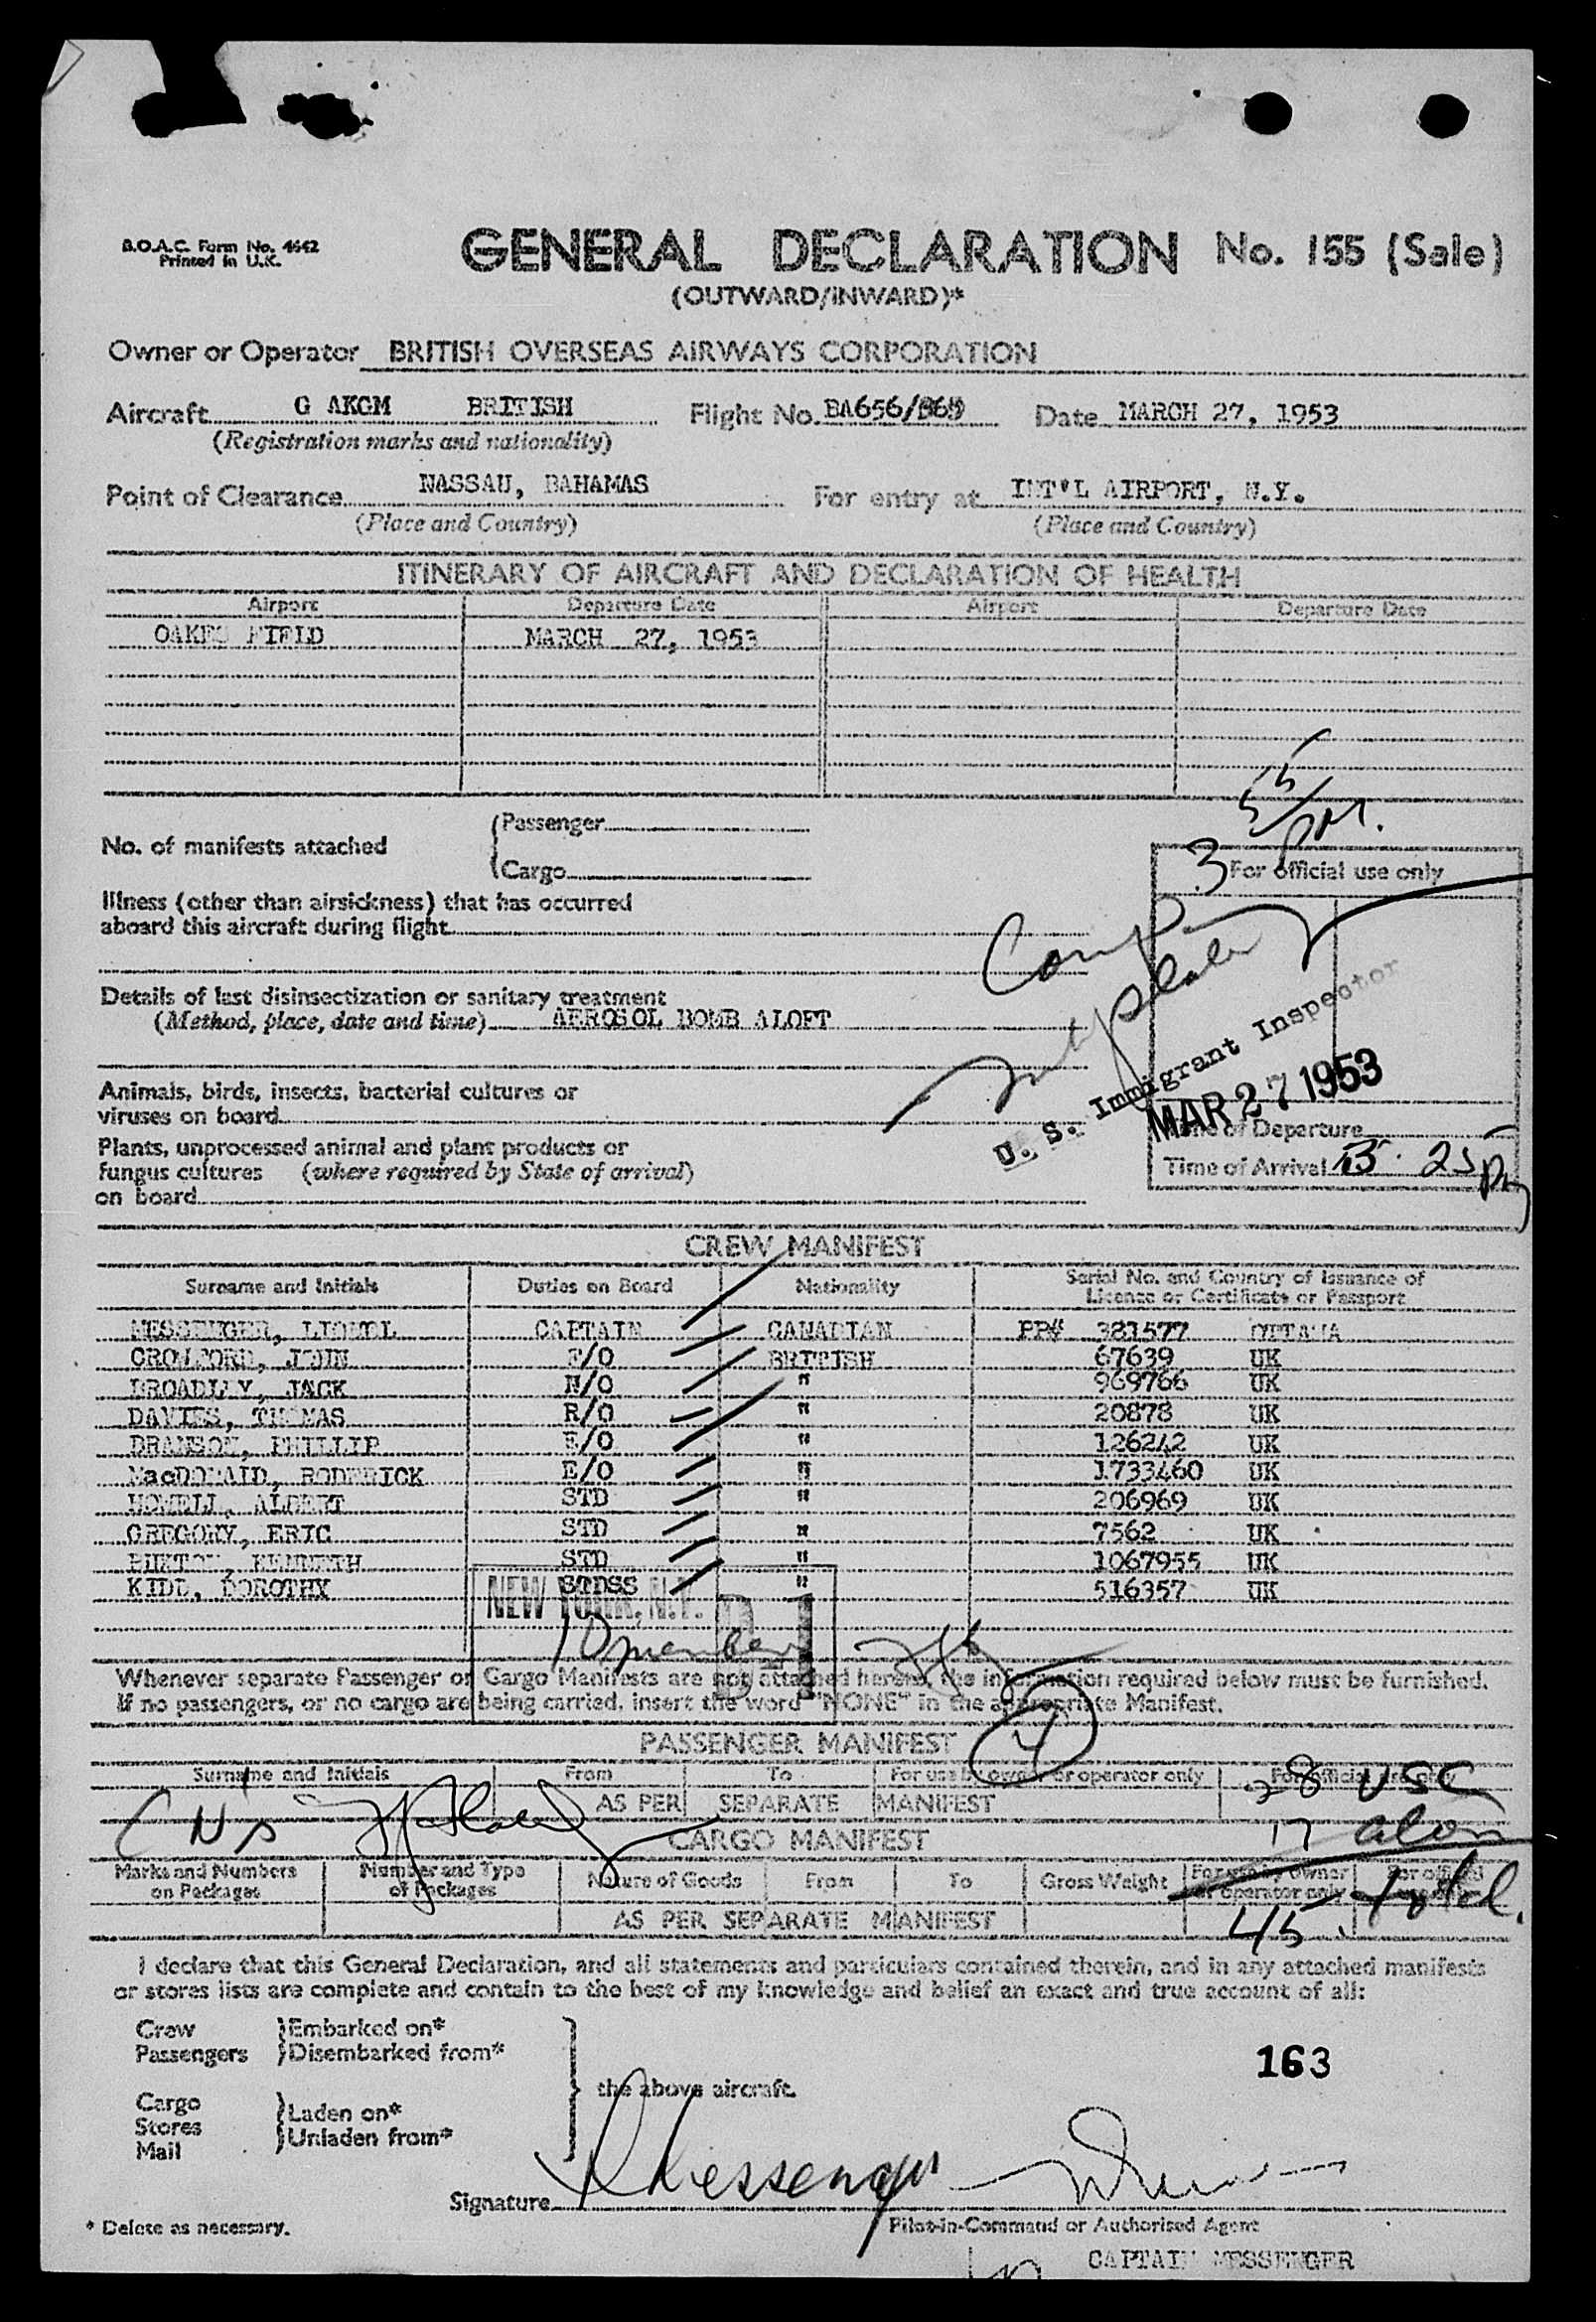 B.O.A.C. Form No. 4642
Printed in U.K.
GENERAL DECLARATION No. 155 (Sale)
(OUTWARD/INWARD)*
Owner or Operator BRITISH OVERSEAS AIRWAYS CORPORATION
Aircraft G AKGM BRITISH Flight No. BA656/ Date MARCH 27, 1953
(Registration marks and nationality)
Point of Clearance NASSAU, BAHAMAS For entry at INT'L AIRPORT, N.Y.
(Place and Country) (Place and Country)
ITINERARY OF AIRCRAFT AND DECLARATION OF HEALTH
Airport Departure Date Airport Departure Date
OAKES FIELD MARCH 27, 1953
3 55/PM.
No. of manifests attached (Passenger
(Cargo
For official use only
Illness (other than airsickness) that has occurred
aboard this aircraft during flight
Comp
Details of last disinsectization or sanitary treatment
(Method, place, date and time) AEROSOL BOMB ALOFT
U. S. Immigrant Inspector
MAR 27 1953
Animals, birds, insects, bacterial cultures or
viruses on board
Time of Departure
Plants, unprocessed animal and plant products or
fungus cultures (where required by State of arrival)
on board
Time of Arrival 3. 25 PM
CREW MANIFEST
Surname and Initials Duties on Board Nationality Serial No. and Country of Issuance of
License or Certificate or Passport
MESSENGER, LIONEL CAPTAIN CANADIAN PP# 381577 OTTAWA
CROWFORD, JOHN F/O BRITISH 67639 UK
BROADLEY, JACK N/O " 969766 UK
DAVIES, THOMAS R/O " 20878 UK
BRANSON, PHILLIP E/O " 126242 UK
MacDONALD, RODERICK E/O " 1733460 UK
HOWELL, ALBERT STD " 206969 UK
GREGORY, ERIC STD " 7562 UK
BURTON, KENNETH STD " 1067955 UK
KIDD, DOROTHY STDSS " 516357 UK
NEW YORK, N.Y.
10 members
Whenever separate Passenger or Cargo Manifests are not attached hereto, the information required below must be furnished.
If no passengers, or no cargo are being carried, insert the word "NONE" in the appropriate Manifest.
PASSENGER MANIFEST
Surname and Initials From To For use by owner or operator only For official use only
28 USC
AS PER SEPARATE MANIFEST
17 alon
CARGO MANIFEST
Marks and Numbers on Packages Number and Type of Packages Nature of Goods From To Gross Weight For use by owner or operator only For official use only
45 total.
AS PER SEPARATE MANIFEST
I declare that this General Declaration, and all statements and particulars contained therein, and in any attached manifests
or stores lists are complete and contain to the best of my knowledge and belief an exact and true account of all:
Crew }Embarked on*
Passengers }Disembarked from*
163
the above aircraft.
Cargo }Laden on*
Stores
Mail }Unladen from*
Signature
* Delete as necessary.
Pilot-in-Command or Authorised Agent
CAPTAIN MESSENGER